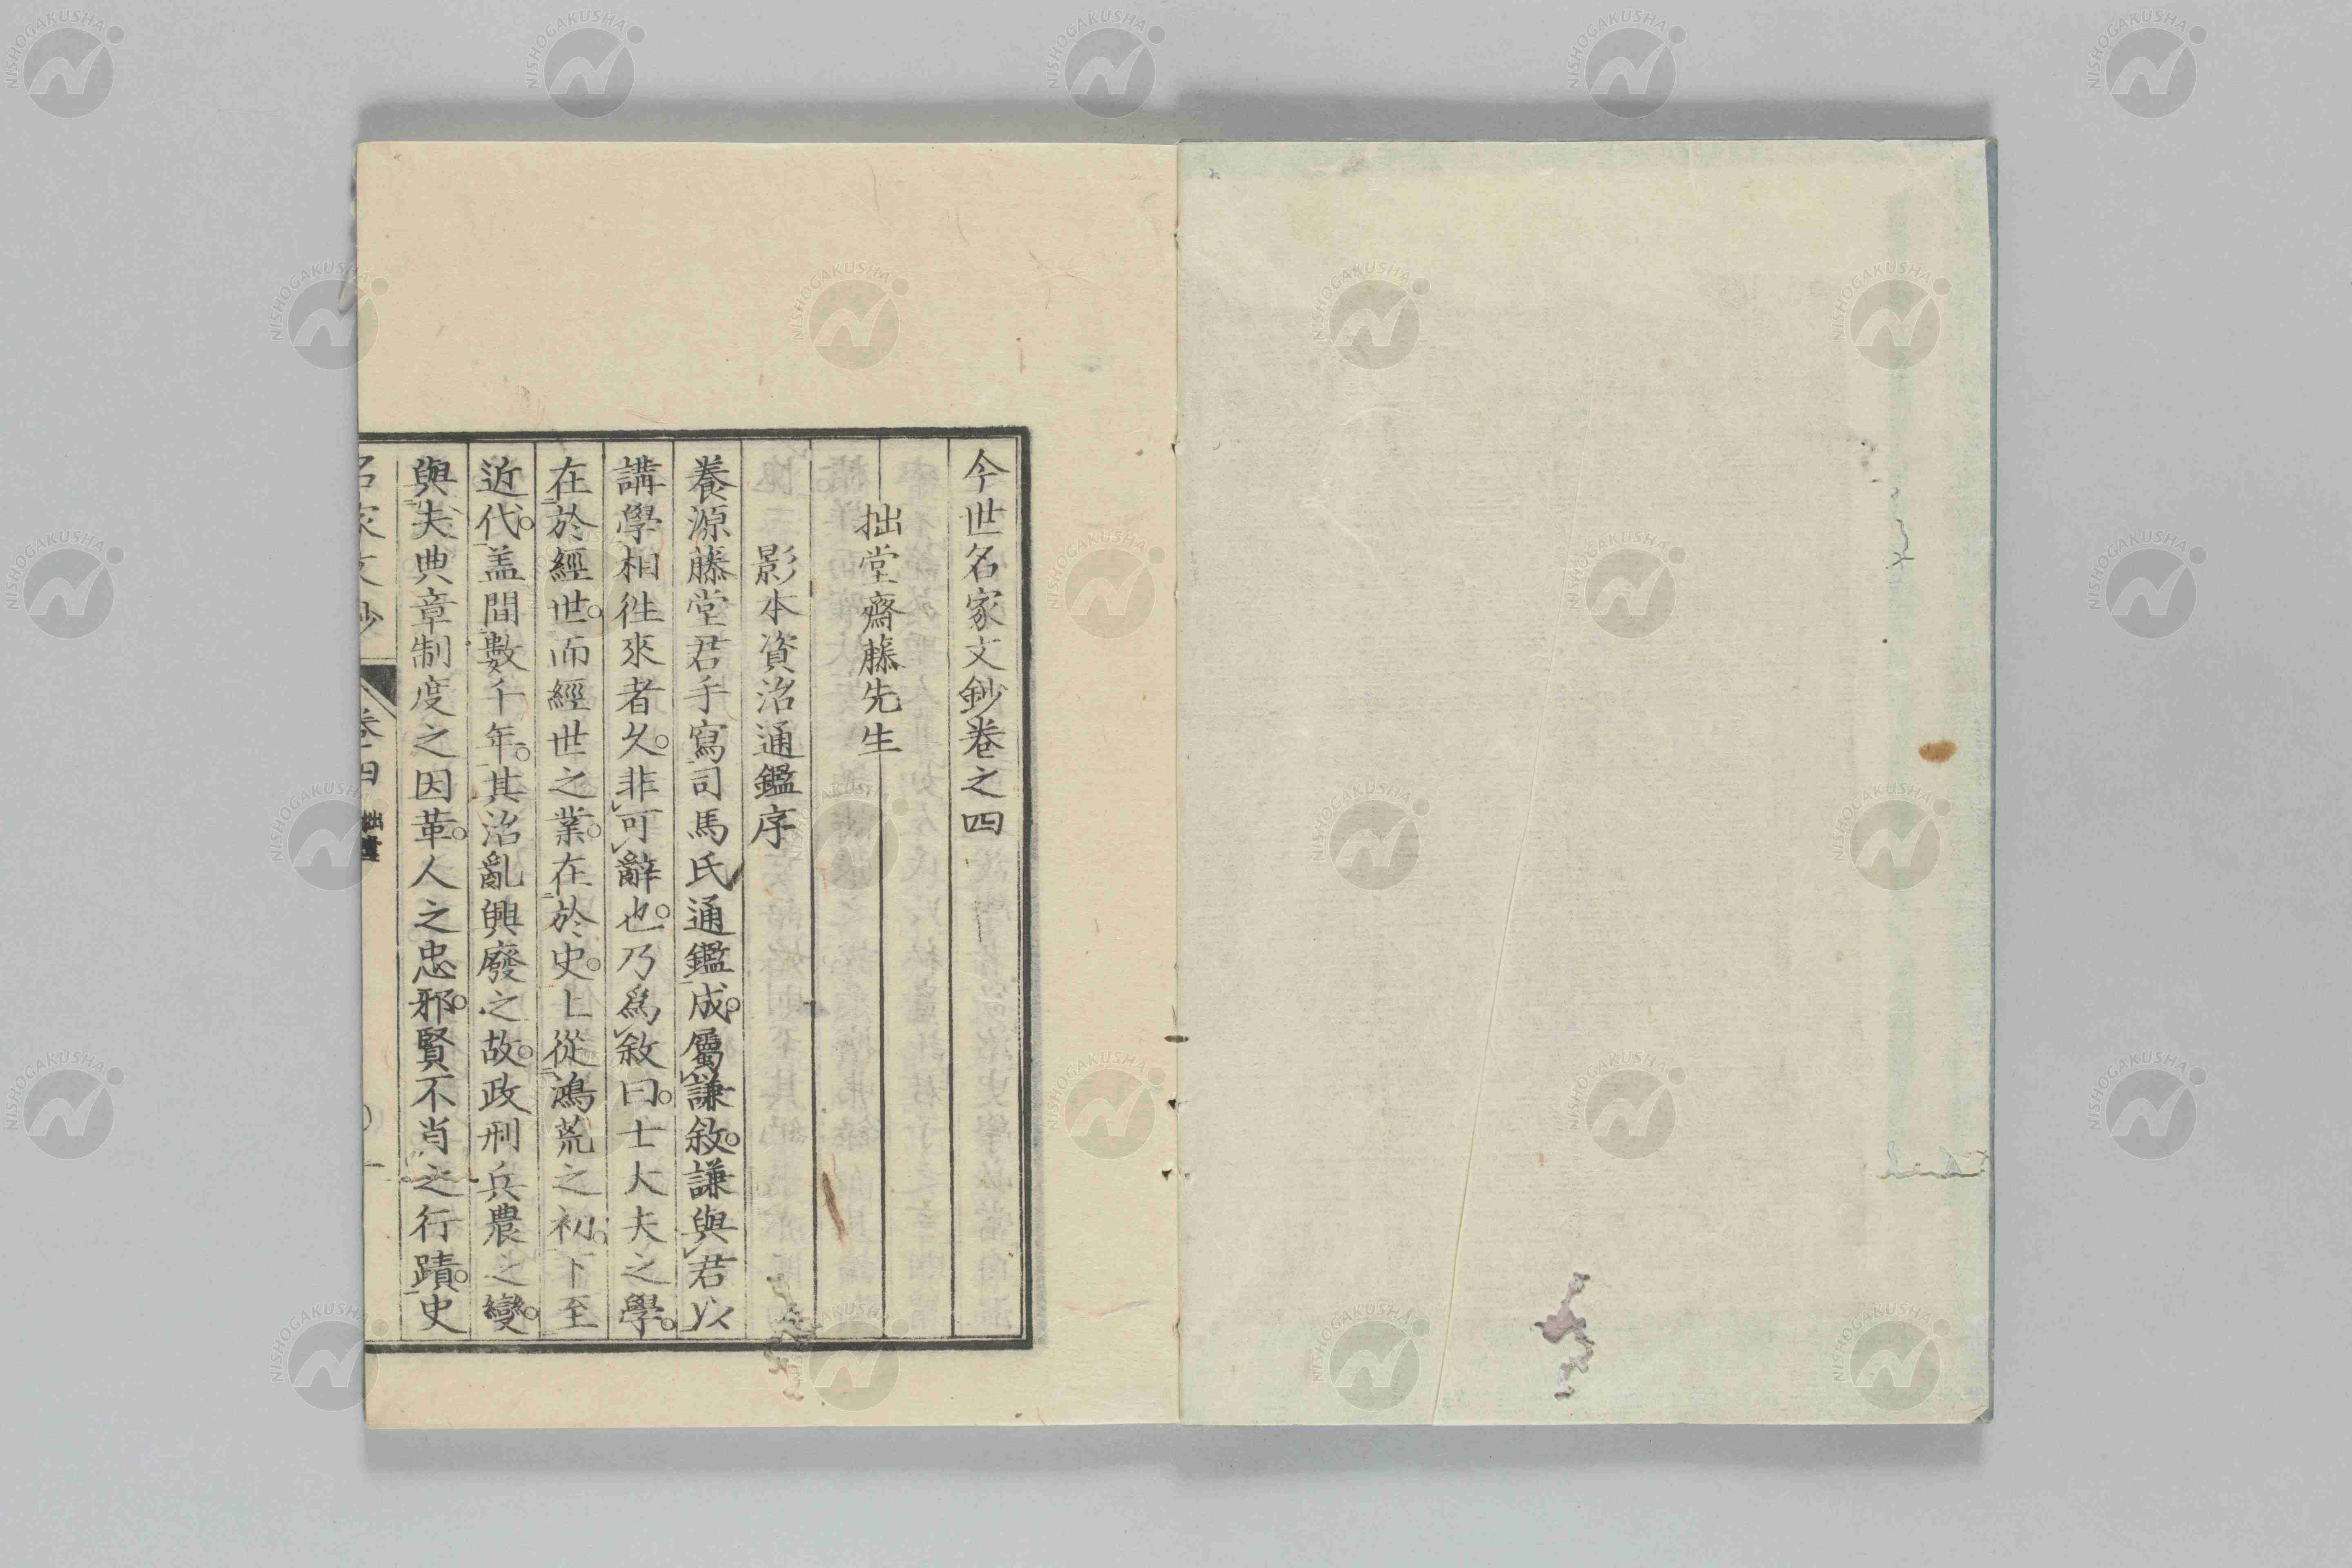 今世名家文鈔卷之四
拙堂齋藤先生
影本資治通鑑序
養源藤堂君手寫司馬氏通鑑成。屬謙敘。謙與君以
講學相往來者久。非可辭也。乃爲敘曰。士大夫之學。
在於經世。而經世之業。在於史。上從鴻荒之初。下至
近代。盖間數千年。其治亂興廢之故。政刑兵農之變。
與夫典章制度之因革。人之忠邪。賢不肖之行蹟。史
名家文鈔 卷四 拙堂 一
NISHOGAKUSHA